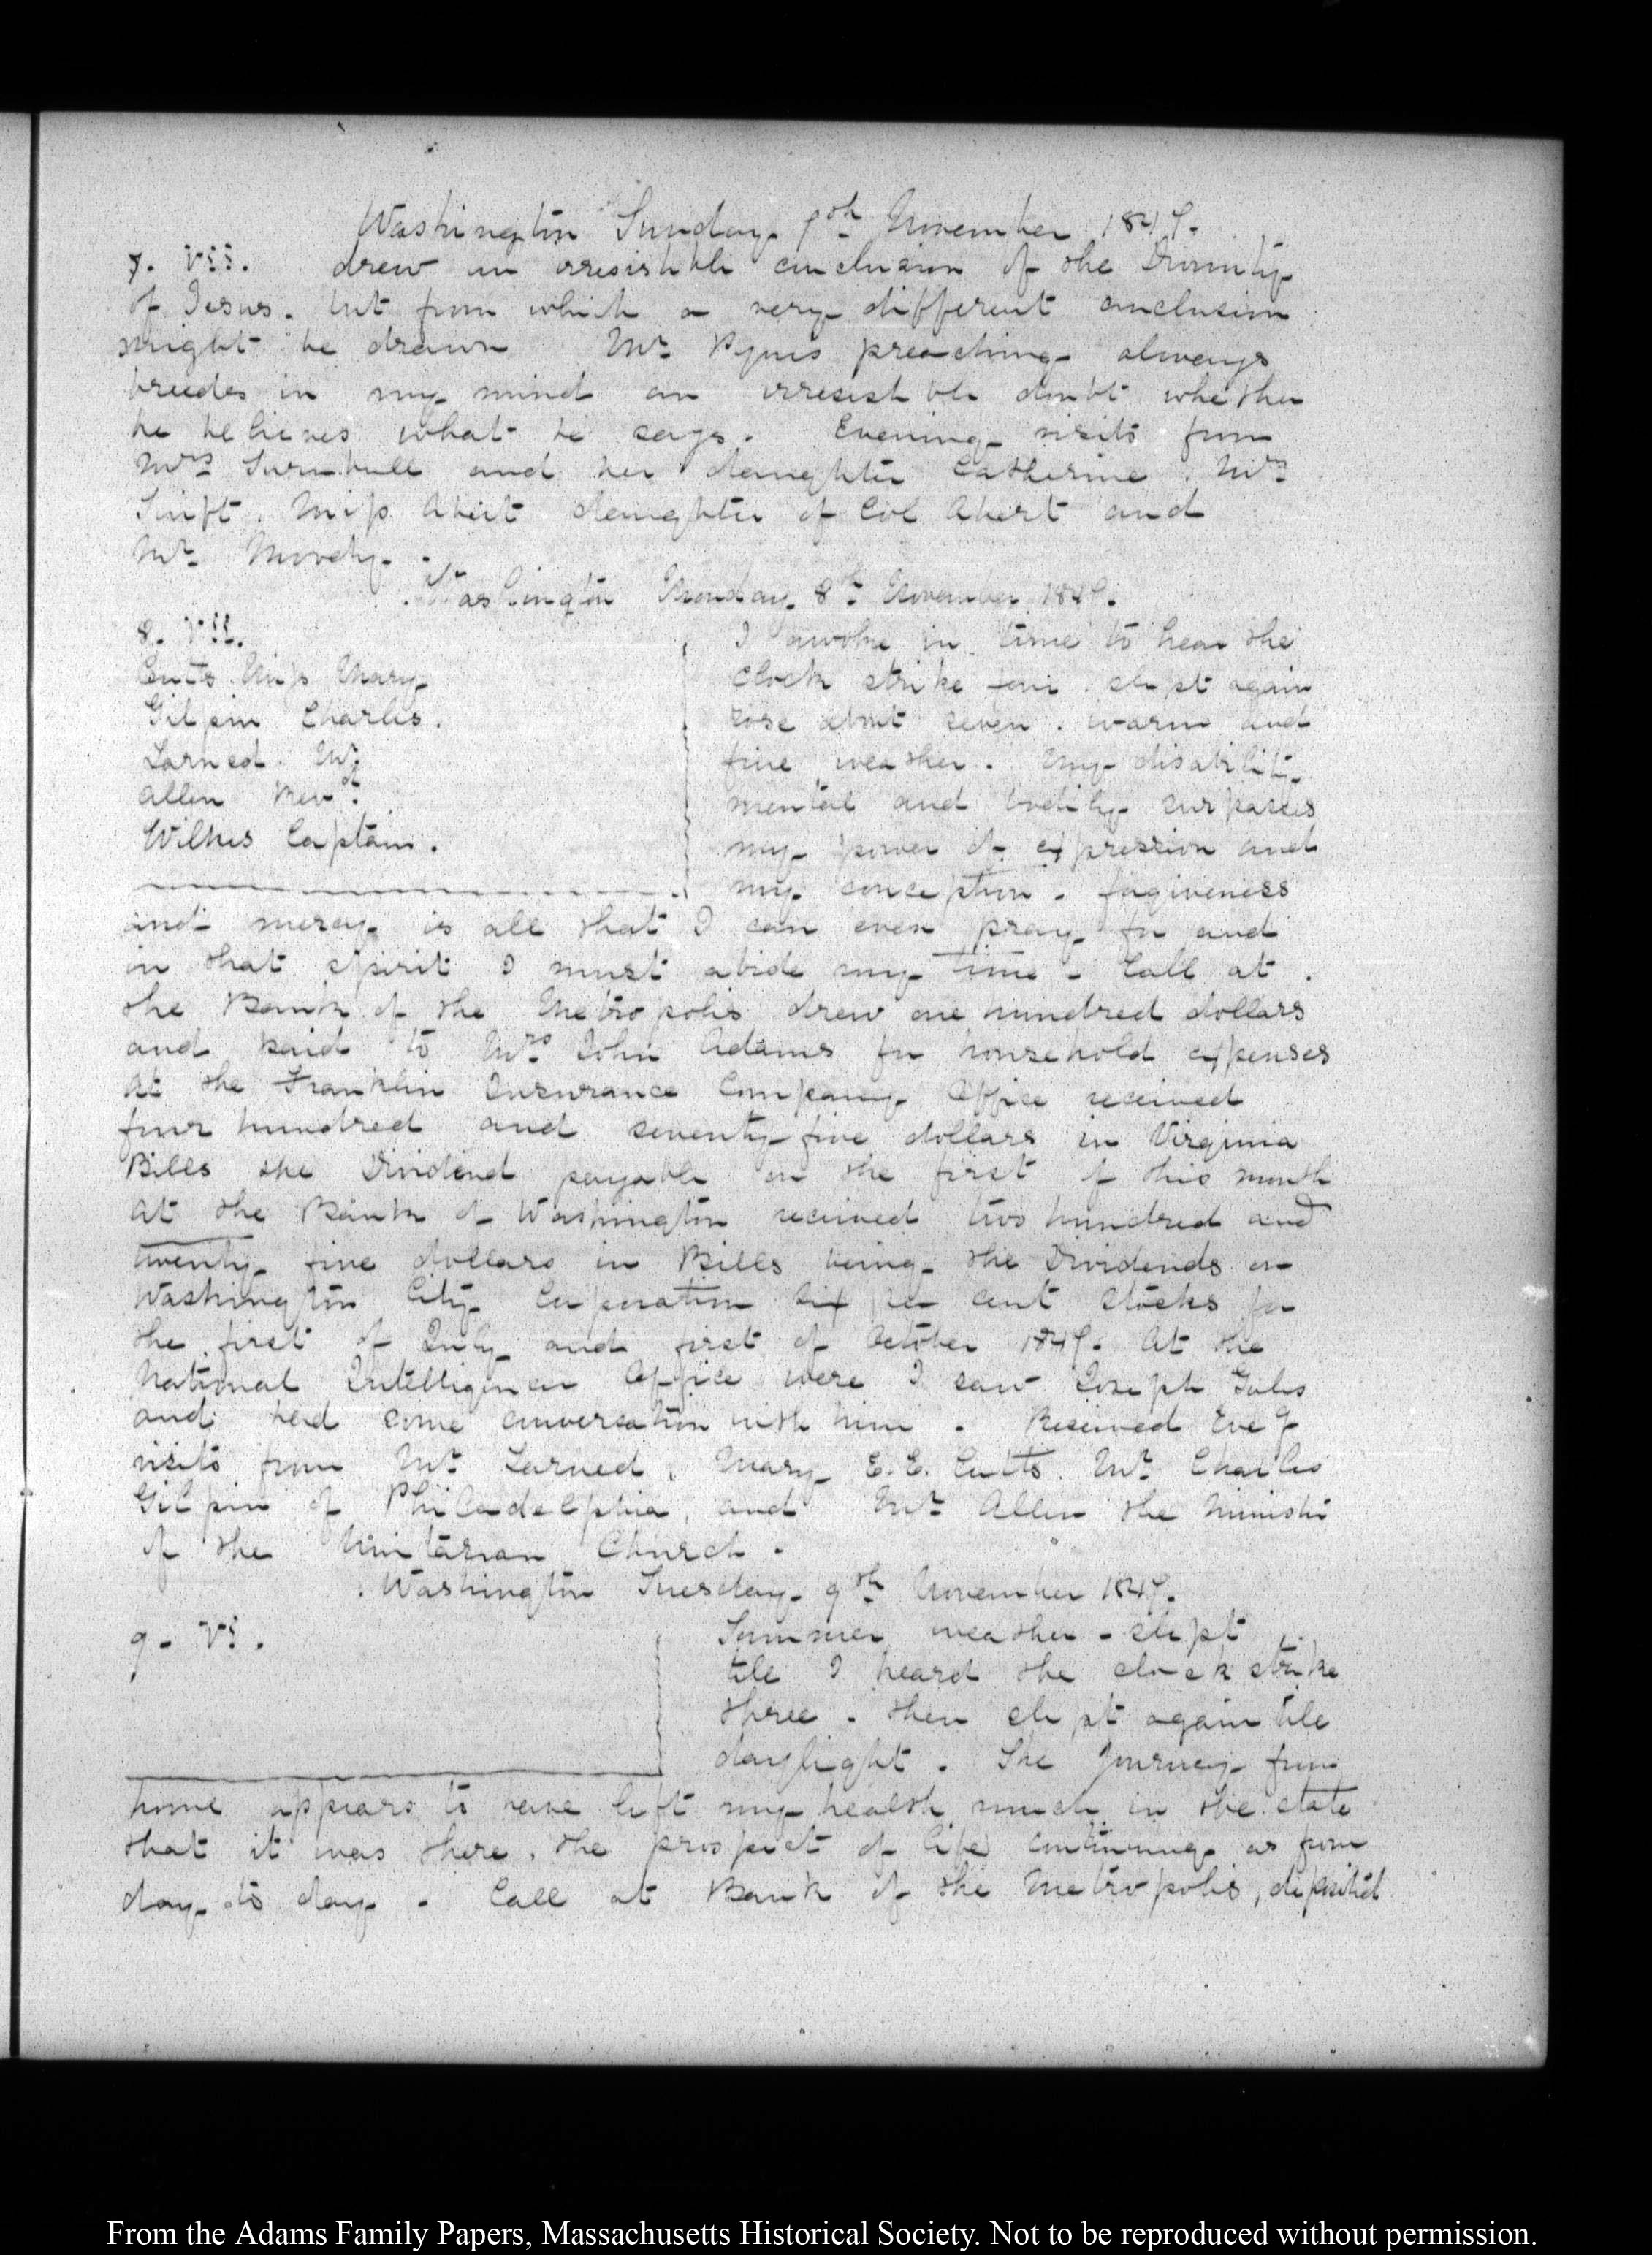 Washington Sunday 7th November 1847.
7. VII. drew an irresistible conclusion of the Divinity
of Jesus. but from which a very different conclusion
might be drawn Mr Pyne's preaching always
breeds in my mind an irresistible doubt whether
he believes what he says. Evening visits from
Mrs Turnbull and her daughter Catherine. Mrs
Swift. Miss Abert daughter of Col Abert and
Mr Moody.
Washington Monday 8th November 1847.
8. VII.
Cutts. Miss Mary
Gilpin Charles.
Larned. Mr
Allen Revd.
Wilkes Captain.
I awoke in time to hear the
clock strike four. slept again
rose about seven. warm and
fine weather. My disability
mental and bodily surpasses
my power of expression and
my conception. forgiveness
and mercy is all that I can even pray for and
in that spirit I must abide my time. Call at
the Bank of the Metropolis drew one hundred dollars
and paid to Mrs John Adams for household expenses
at the Franklin Insurance Company Office received
four hundred and seventy five dollars in Virginia
Bills the Dividend payable on the first of this month
at the Bank of Washington received two hundred and
twenty five dollars in Bills being the Dividends on
Washington City Corporation six per cent stocks for
the first of July and first of October 1847. At the
National Intelligencer Office were I saw Joseph Gales
and had some conversation with him. Received Eveg
visits from Mr Larned, Mary E. E. Cutts. Mr Charles
Gilpin of Philadelphia, and Mr Allen the Minister
of the Unitarian Church.
Washington Tuesday 9th November 1847.
9. VI.
Summer weather. slept
till I heard the clock strike
three. then slept again till
daylight. The journey from
home appears to have left my health much in the state
that it was there. the prospect of life continuing as from
day to day. Call at Bank of the Metropolis, deposited
From the Adams Family Papers, Massachusetts Historical Society. Not to be reproduced without permission.